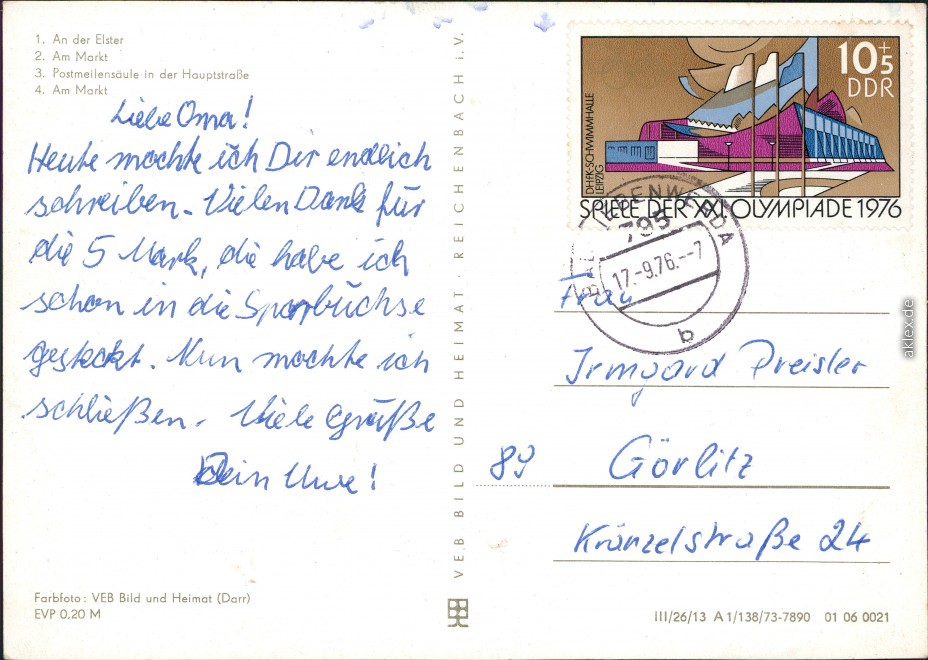 1. An der Elster
2. Am Markt
3. Postmeilensäule in der Hauptstraße
4. Am Markt
Liebe Oma!
Heute möchte ich Dir endlich
schreiben. Vielen Dank für
die 5 Mark, die habe ich
schon in die Sparbüchse
gesteckt. Nun möchte ich
schließen. Viele Grüße
Dein Uwe!
Farbfoto: VEB Bild und Heimat (Darr)
EVP 0.20 M
VEB BILD UND HEIMAT · REICHENBACH i.V.
10+5
DDR
DHFK-SCHWIMMHALLE
LEIPZIG
SPIELE DER XXI. OLYMPIADE 1976
795
17.-9.76.--7
b
Frau
Irmgard Preisler
89 Görlitz
Kränzelstraße 24
III/26/13 A 1/138/73-7890 01 06 0021
aklex.de